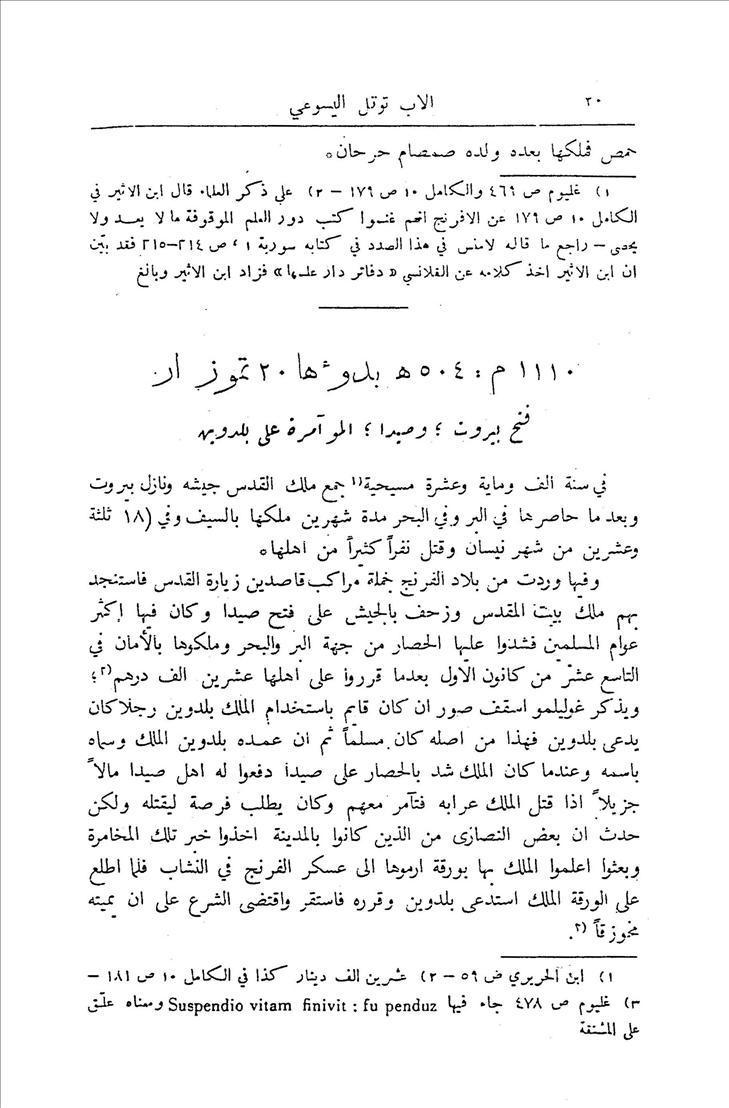 ٢٠ الاب توتل اليسوعي
حمص فملكها بعده ولده صمصام حرحان٭
١) غليوم ص ٤٦٩ والكامل ١٠ ص ١٧٩ – ٢) على ذكر العلماء قال ابن الاثير في
الكامل ١٠ ص ١٧٩ عن الافرنج انهم غنموا كتب دور العلم الموقوفة ما لا يعد ولا
يحصى – راجع ما قاله لامنس في هذا الصدد في كتابه سورية ١، ص ٢١٤–٢١٥ فقد بيّن
ان ابن الاثير اخذ كلامه عن القلانسي « دفاتر دار علمها » فزاد ابن الاثير وبالغ
١١١٠ م : ٥٠٤ ھ بدوءها ٢٠ تموز ار
فتح بيروت ؛ وصيدا ؛ الموآمرة على بلدوين
في سنة الف وماية وعشرة مسيحية(١ جمع ملك القدس جيشه ونازل بيروت
وبعد ما حاصرها في البر وفي البحر مدة شهرين ملكها بالسيف وفي (١٨ ثلثة
وعشرين من شهر نيسان وقتل نفراً كثيراً من اهلها٭
وفيها وردت من بلاد الفرنج جملة مراكب قاصدين زيارة القدس فاستنجد
بهم ملك بيت المقدس وزحف بالجيش على فتح صيدا وكان فيها اكثر
عوام المسلمين فشدوا عليها الحصار من جهة البر والبحر وملكوها بالأمان في
التاسع عشر من كانون الاول بعدما قرروا على اهلها عشرين الف درهم(٢؛
ويذكر غوليلمو اسقف صور ان كان قايم باستخدام الملك بلدوين رجلاكان
يدعى بلدوين فهذا من اصله كان مسلماً ثم ان عمده بلدوين الملك وسماه
باسمه وعندما كان الملك شد بالحصار على صيدا دفعوا له اهل صيدا مالاً
جزيلاً اذا قتل الملك عرابه فتآمر معهم وكان يطلب فرصة ليقتله ولكن
حدث ان بعض النصارى من الذين كانوا بالمدينة اخذوا خبر تلك المخامرة
وبعثوا اعلموا الملك بها بورقة ارموها الى عسكر الفرنج في النشاب فلما اطلع
على الورقة الملك استدعى بلدوين وقرره فاستقر واقتضى الشرع على ان يميته
مخوزقاً(٣.
١) ابن الحريري ص ٥٩ – ٢) عشرين الف دينار كذا في الكامل ١٠ ص ١٨١ –
٣) غليوم ص ٤٧٨ جاء فيها Suspendio vitam finivit : fu penduz ومعناه علّق
على المشنقة